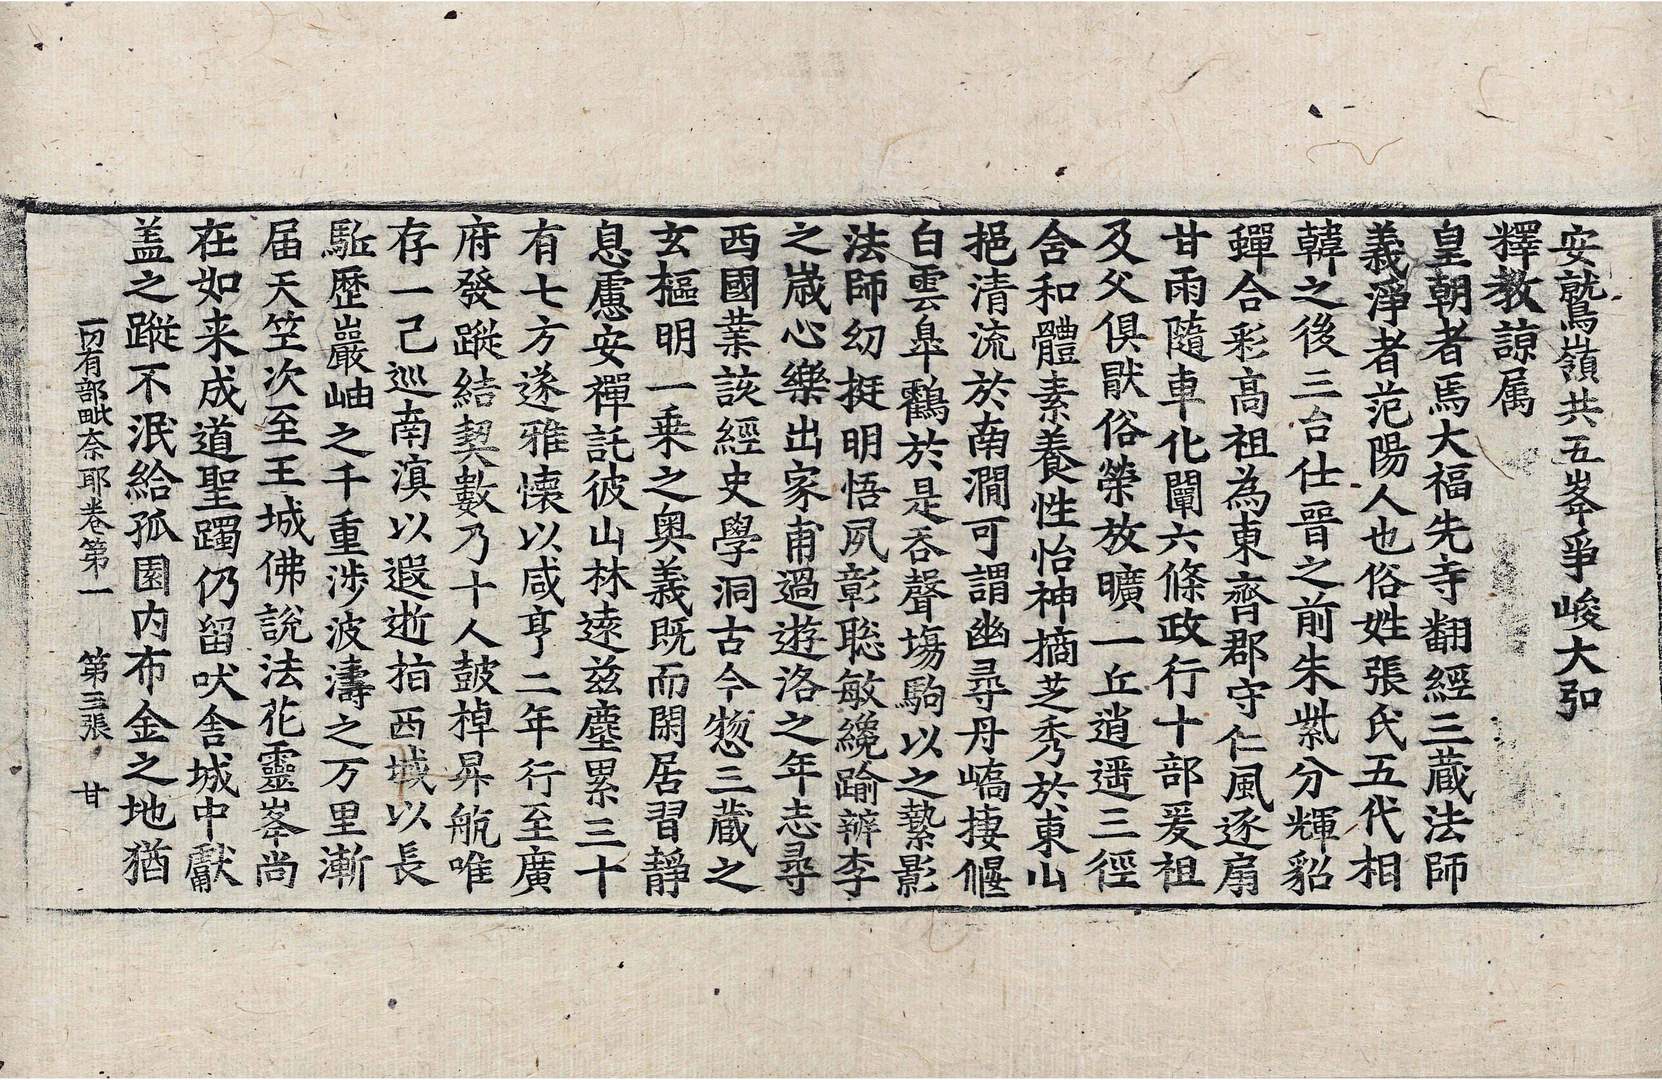 安鷲嶺共五峯爭峻大弘
釋教諒属
皇朝者焉大福先寺翻經三蔵法師
義淨者范陽人也俗姓張氏五代相
韓之後三台仕晉之前朱紫分輝貂
蟬合彩高祖為東齊郡守仁風逐扇
甘雨隨車化闡六條政行十部爰祖
及父俱猒俗榮放曠一丘逍遥三徑
含和體素養性怡神摘芝秀於東山
挹清流於南澗可謂幽尋丹嶠捿偃
白雲皐鸖於是吞聲場駒以之縶影
法師幼挺明悟夙彰聡敏纔踰辨李
之歳心樂出家甫過遊洛之年志尋
西國業該經史學洞古今惣三蔵之
玄樞明一乗之奥義既而閑居習靜
息慮安禪託彼山林遠兹塵累三十
有七方遂雅懐以咸亨二年行至廣
府發蹤結契數乃十人皷棹昇航唯
存一己巡南溟以遐逝指西域以長
駈歷巖岫之千重涉波濤之万里漸
届天竺次至王城佛說法花靈峯尚
在如来成道聖躅仍留吠舍城中獻
盖之蹤不泯給孤園内布金之地猶
一切有部毗奈耶卷第一 第三張 甘